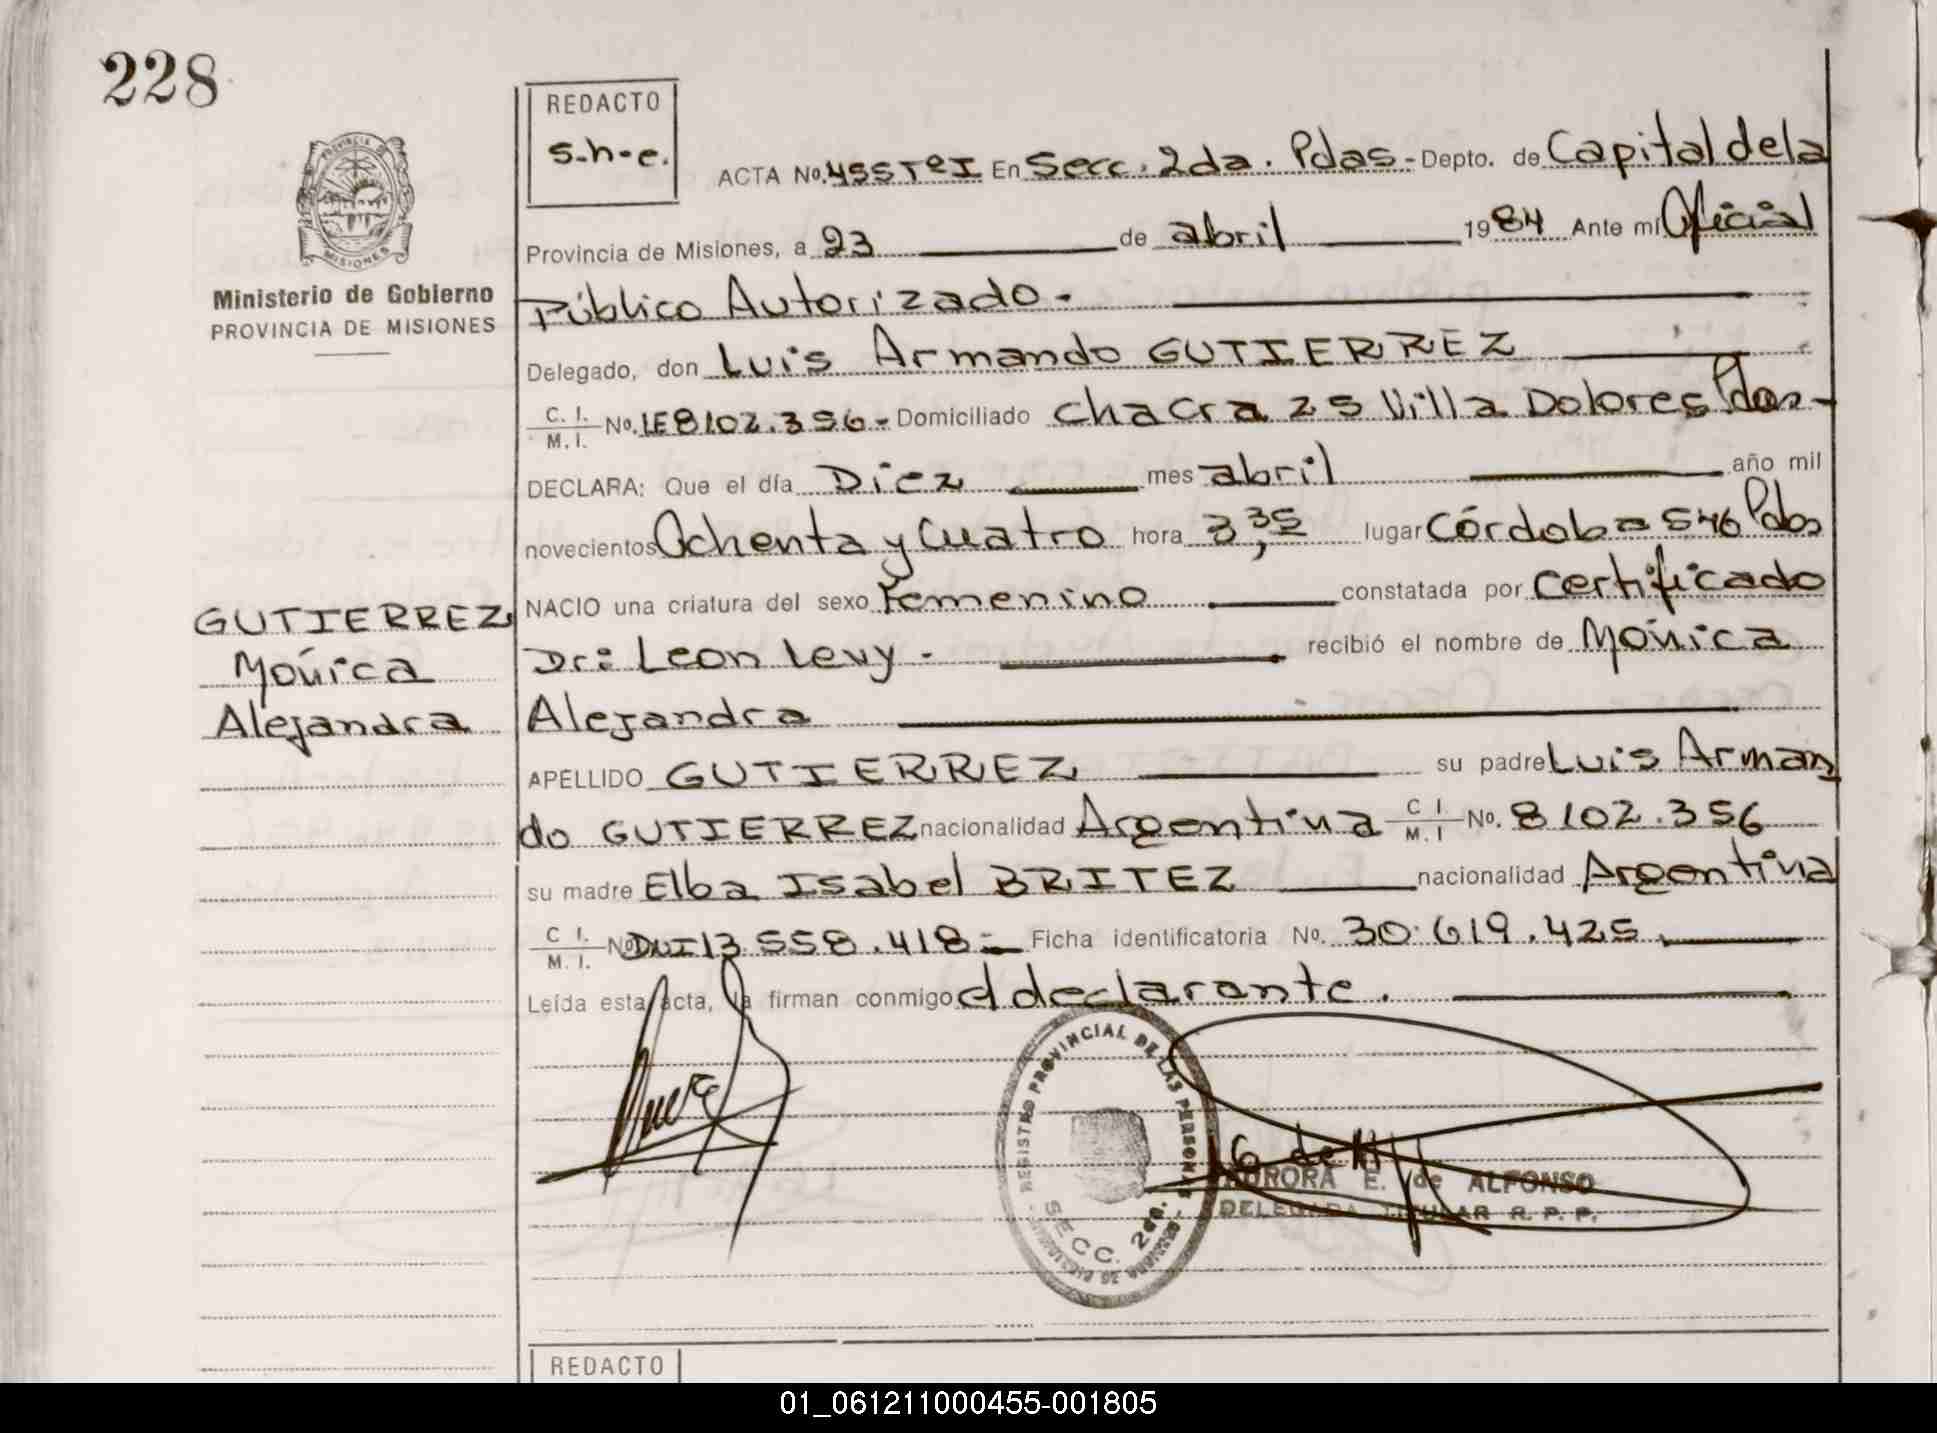 228
REDACTO
S-h-e.
ACTA No. 455 Tº I En Secc. 2da. Pdas - Depto. de Capital de la
Provincia de Misiones, a 23 de abril 1984 Ante mí Oficial
Ministerio de Gobierno
PROVINCIA DE MISIONES
Público Autorizado -
Delegado, don Luis Armando GUTIERREZ
C. I. / M. I. No. LE 8102.356 - Domiciliado Chacra 25 Villa Dolores Pdas -
DECLARA: Que el día Diez mes abril año mil
novecientos Ochenta y Cuatro hora 3,35 lugar Córdoba 546 Pdas
NACIO una criatura del sexo Femenino constatada por Certificado
Dr: Leon Levy - recibió el nombre de Mónica
Alejandra
GUTIERREZ
Mónica
Alejandra
APELLIDO GUTIERREZ su padre Luis Arman
do GUTIERREZ nacionalidad Argentina C I / M. I No. 8102.356
su madre Elba Isabel BRITEZ nacionalidad Argentina
C I. / M. I. No DNI 13.558.418 - Ficha identificatoria No. 30.619.425.
Leída esta acta, la firman conmigo el declarante.
REGISTRO PROVINCIAL DE LAS PERSONAS
SECC. 2da.
AURORA E. de ALFONSO
DELEGADA TITULAR R. P. P.
REDACTO
01_061211000455-001805